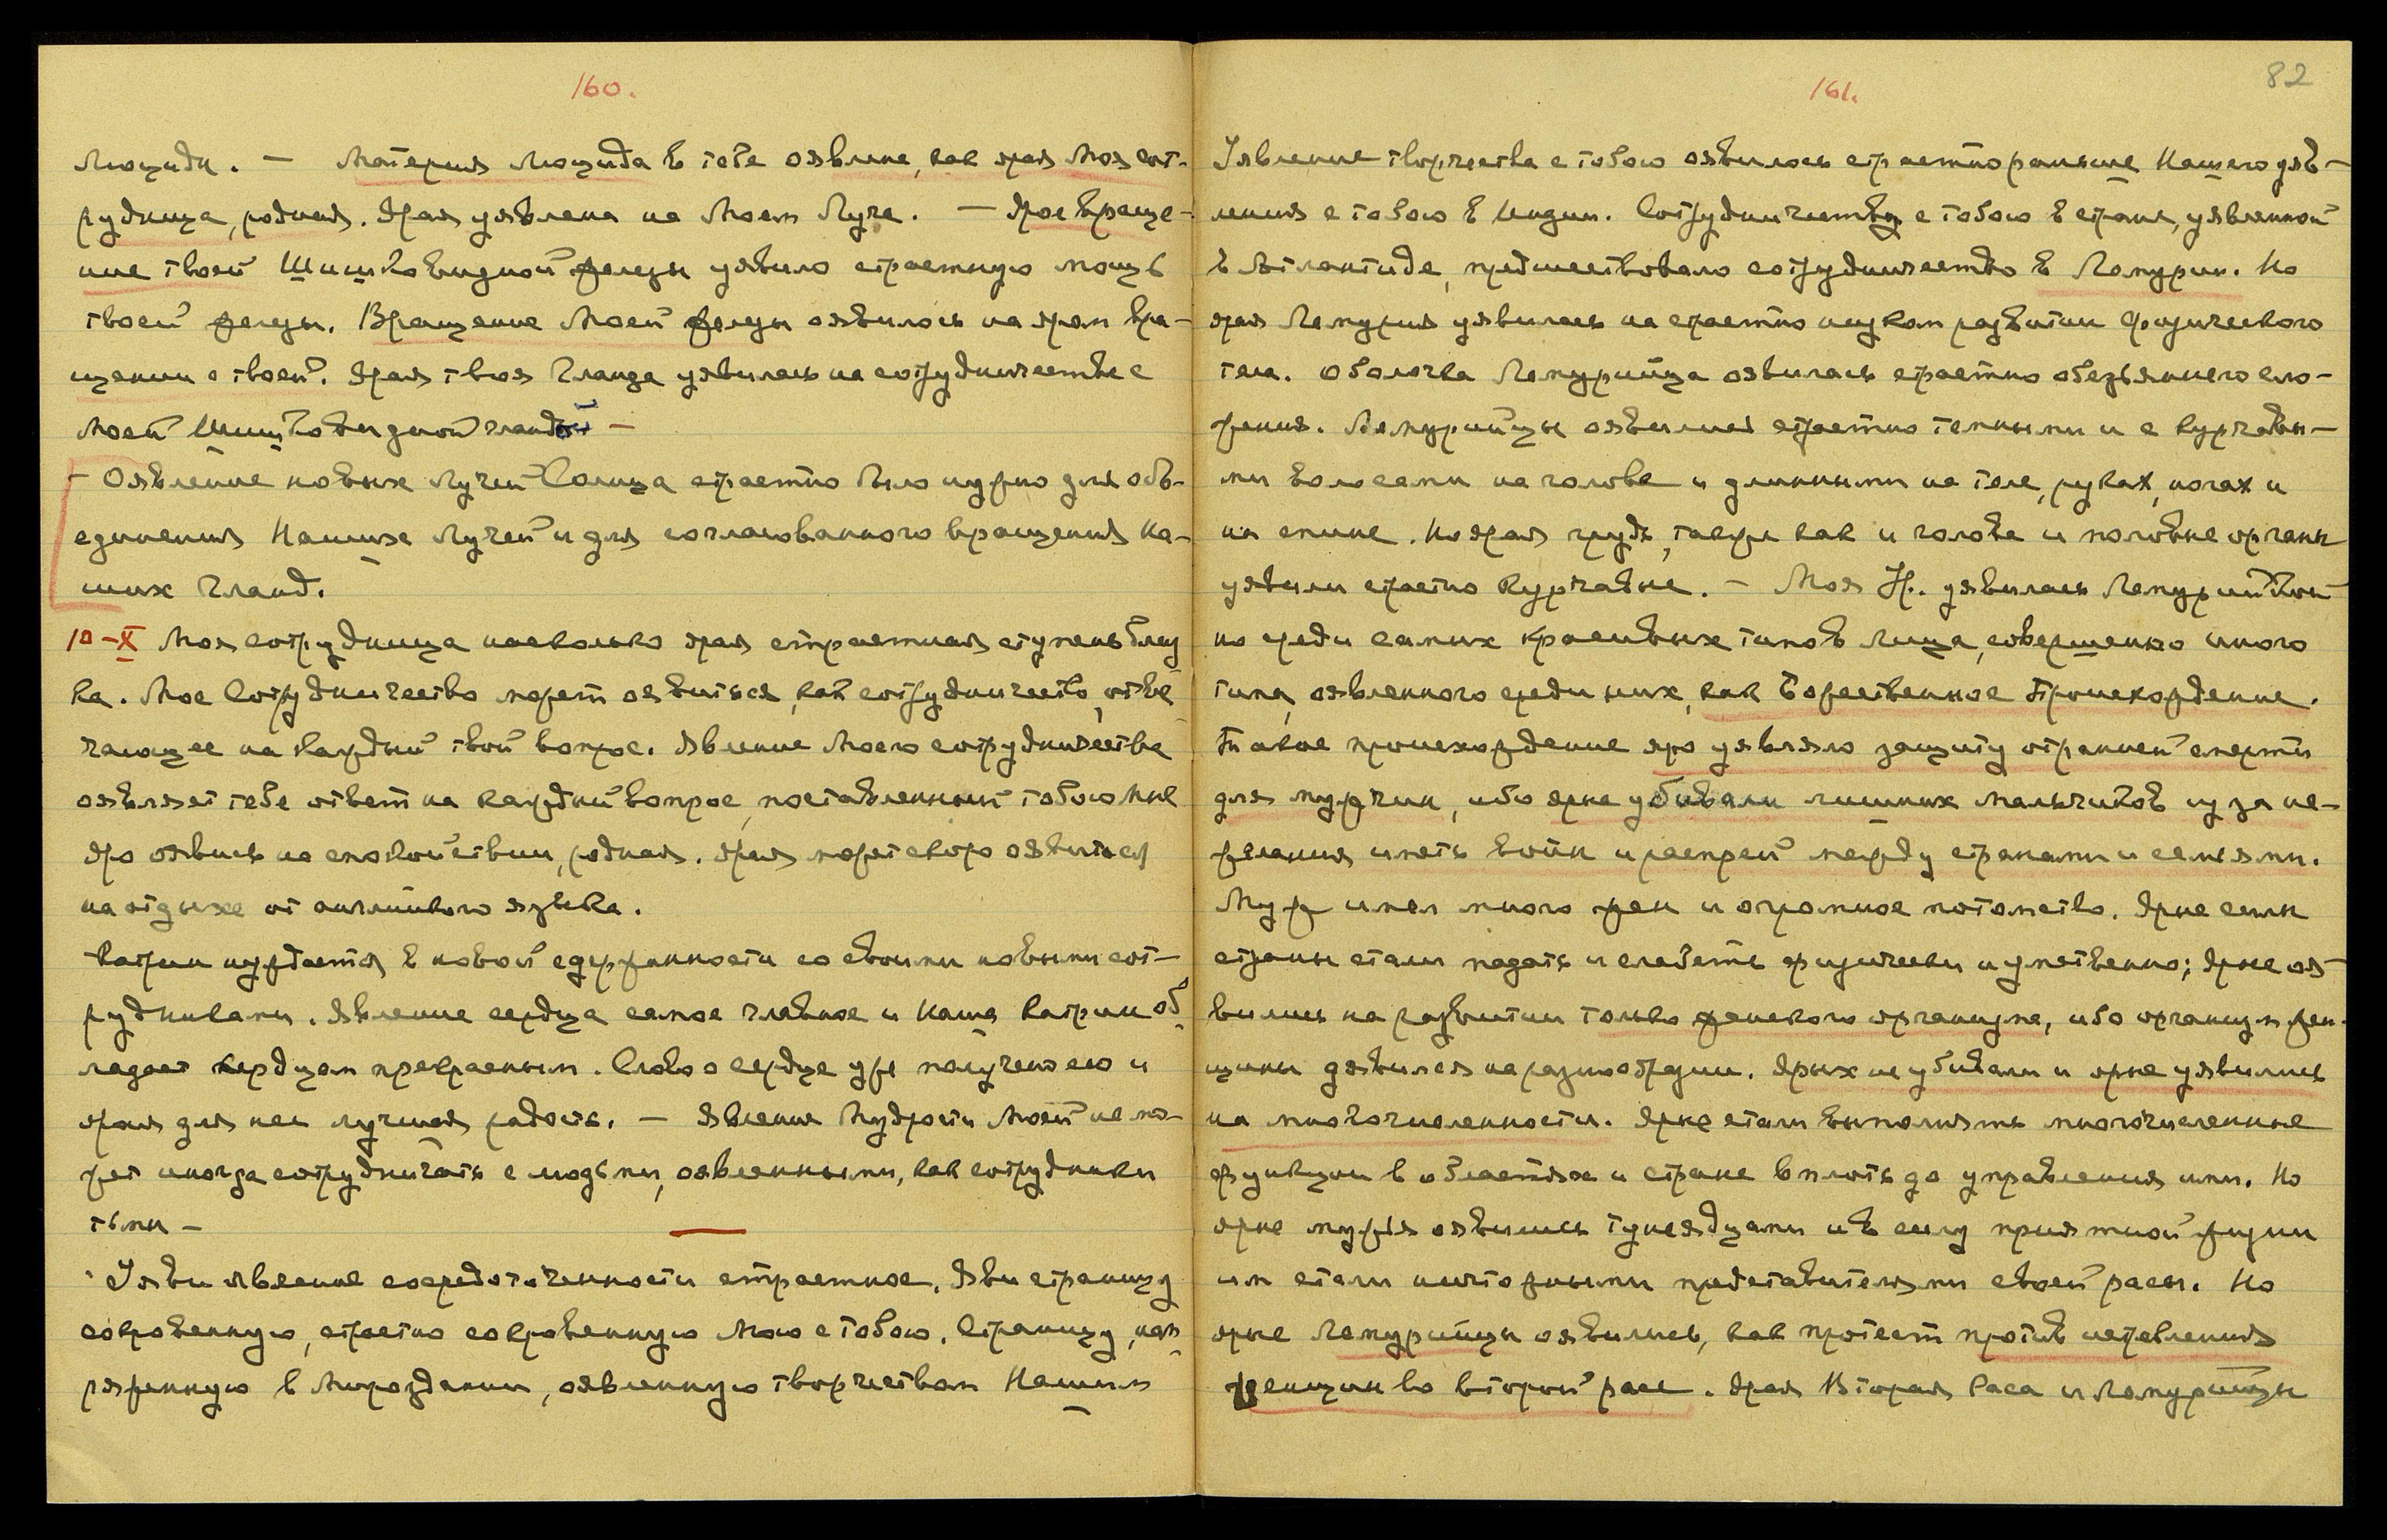 160.
Люцида. — Материя Люцида в тебе оявлена, как ярая Моя сот-
рудница, родная. Ярая уявлена на Моем Луче. — Ярое враще-
ние твоей Шишковидной железы уявило страстную мощь
твоей железы. Вращение Моей железы оявилось на яром вра-
щении с твоей. Ярая твоя Гланда уявилась на сотрудничестве с
Моей Шишковидной гландой —
— Оявление новых Лучей Солнца страстно было нужно для объ-
единения Наших Лучей и для согласованного вращения На-
ших Гланд.
10-X Моя сотрудница насколько ярая страстная ступень близ
ка. Мое Сотрудничество может оявиться, как сотрудничество, отве
чающее на каждый твой вопрос. Явление Моего сотрудничества
оявляет тебе ответ на каждый вопрос, поставленный тобою Мне
Яро оявись на спокойствии, родная. Ярая может скоро оявиться
на отдыхе от английского языка.
Катрин нуждается в новой сдержанности со своими новыми сот-
рудниками. Явление сердца самое главное и Наша Катрин об
ладает сердцем прекрасным. Слово о сердце уже получено ею и
ярая для нее лучшая радость. — Явление Мудрости Моей не мо-
жет иногда сотрудничать с людьми, оявленными, как сотрудники
тьмы —
Уяви явление сосредоточенности страстное. Яви страницу
сокровенную, страстно сокровенную Мою с тобою. Страницу, нап
ряженную в Мироздании, оявленную творчеством Нашим
82
161.
Уявление творчества с тобою оявилось страстно раньше Нашего уяв-
ления с тобою в Индии. Сотрудничеству с тобою в стране, уявленной
в Атлантиде, предшествовало сотрудничество в Лемурии. Но
ярая Лемурия уявилась на страстно низком развитии физического
тела. Оболочка Лемурийца оявилась страстно обезьяньего сло-
жения. Лемурийцы оявились страстно темными и с курчавы-
ми волосами на голове и длинными на теле, руках, ногах и
на спине. Но ярая грудь, также как и голова и половые органы
уявили страстно курчавые. — Моя Н. уявилась Лемурийкой
но среди самых красивых типов лица, совершенно иного
типа, оявленного среди них, как Божественное Происхождение.
Такое происхождение яро уявляло защиту от ранней смерти
для мужчин, ибо ярые убивали лишних мальчиков из за не-
желания иметь войн и распрей между странами и семьями.
Муж имел много жен и огромное потомство. Ярые семьи
страны стали падать и слабеть физически и умственно; Ярые оя-
вились на развитии только женского организма, ибо организм жен-
щины уявился на разнообразии. Ярых не убивали и ярые уявились
на многочисленности. Ярые стали выполнять многочисленные
функции в областях и стране вплоть до управления ими. Но
ярые мужья оявились тунеядцами и в силу приятной жизни
им стали ничтожными представителями своей расы. Но
ярые Лемурийцы оявились, как протест против истребления
женщин во второй расе. Ярая Вторая Раса и Лемурийцы